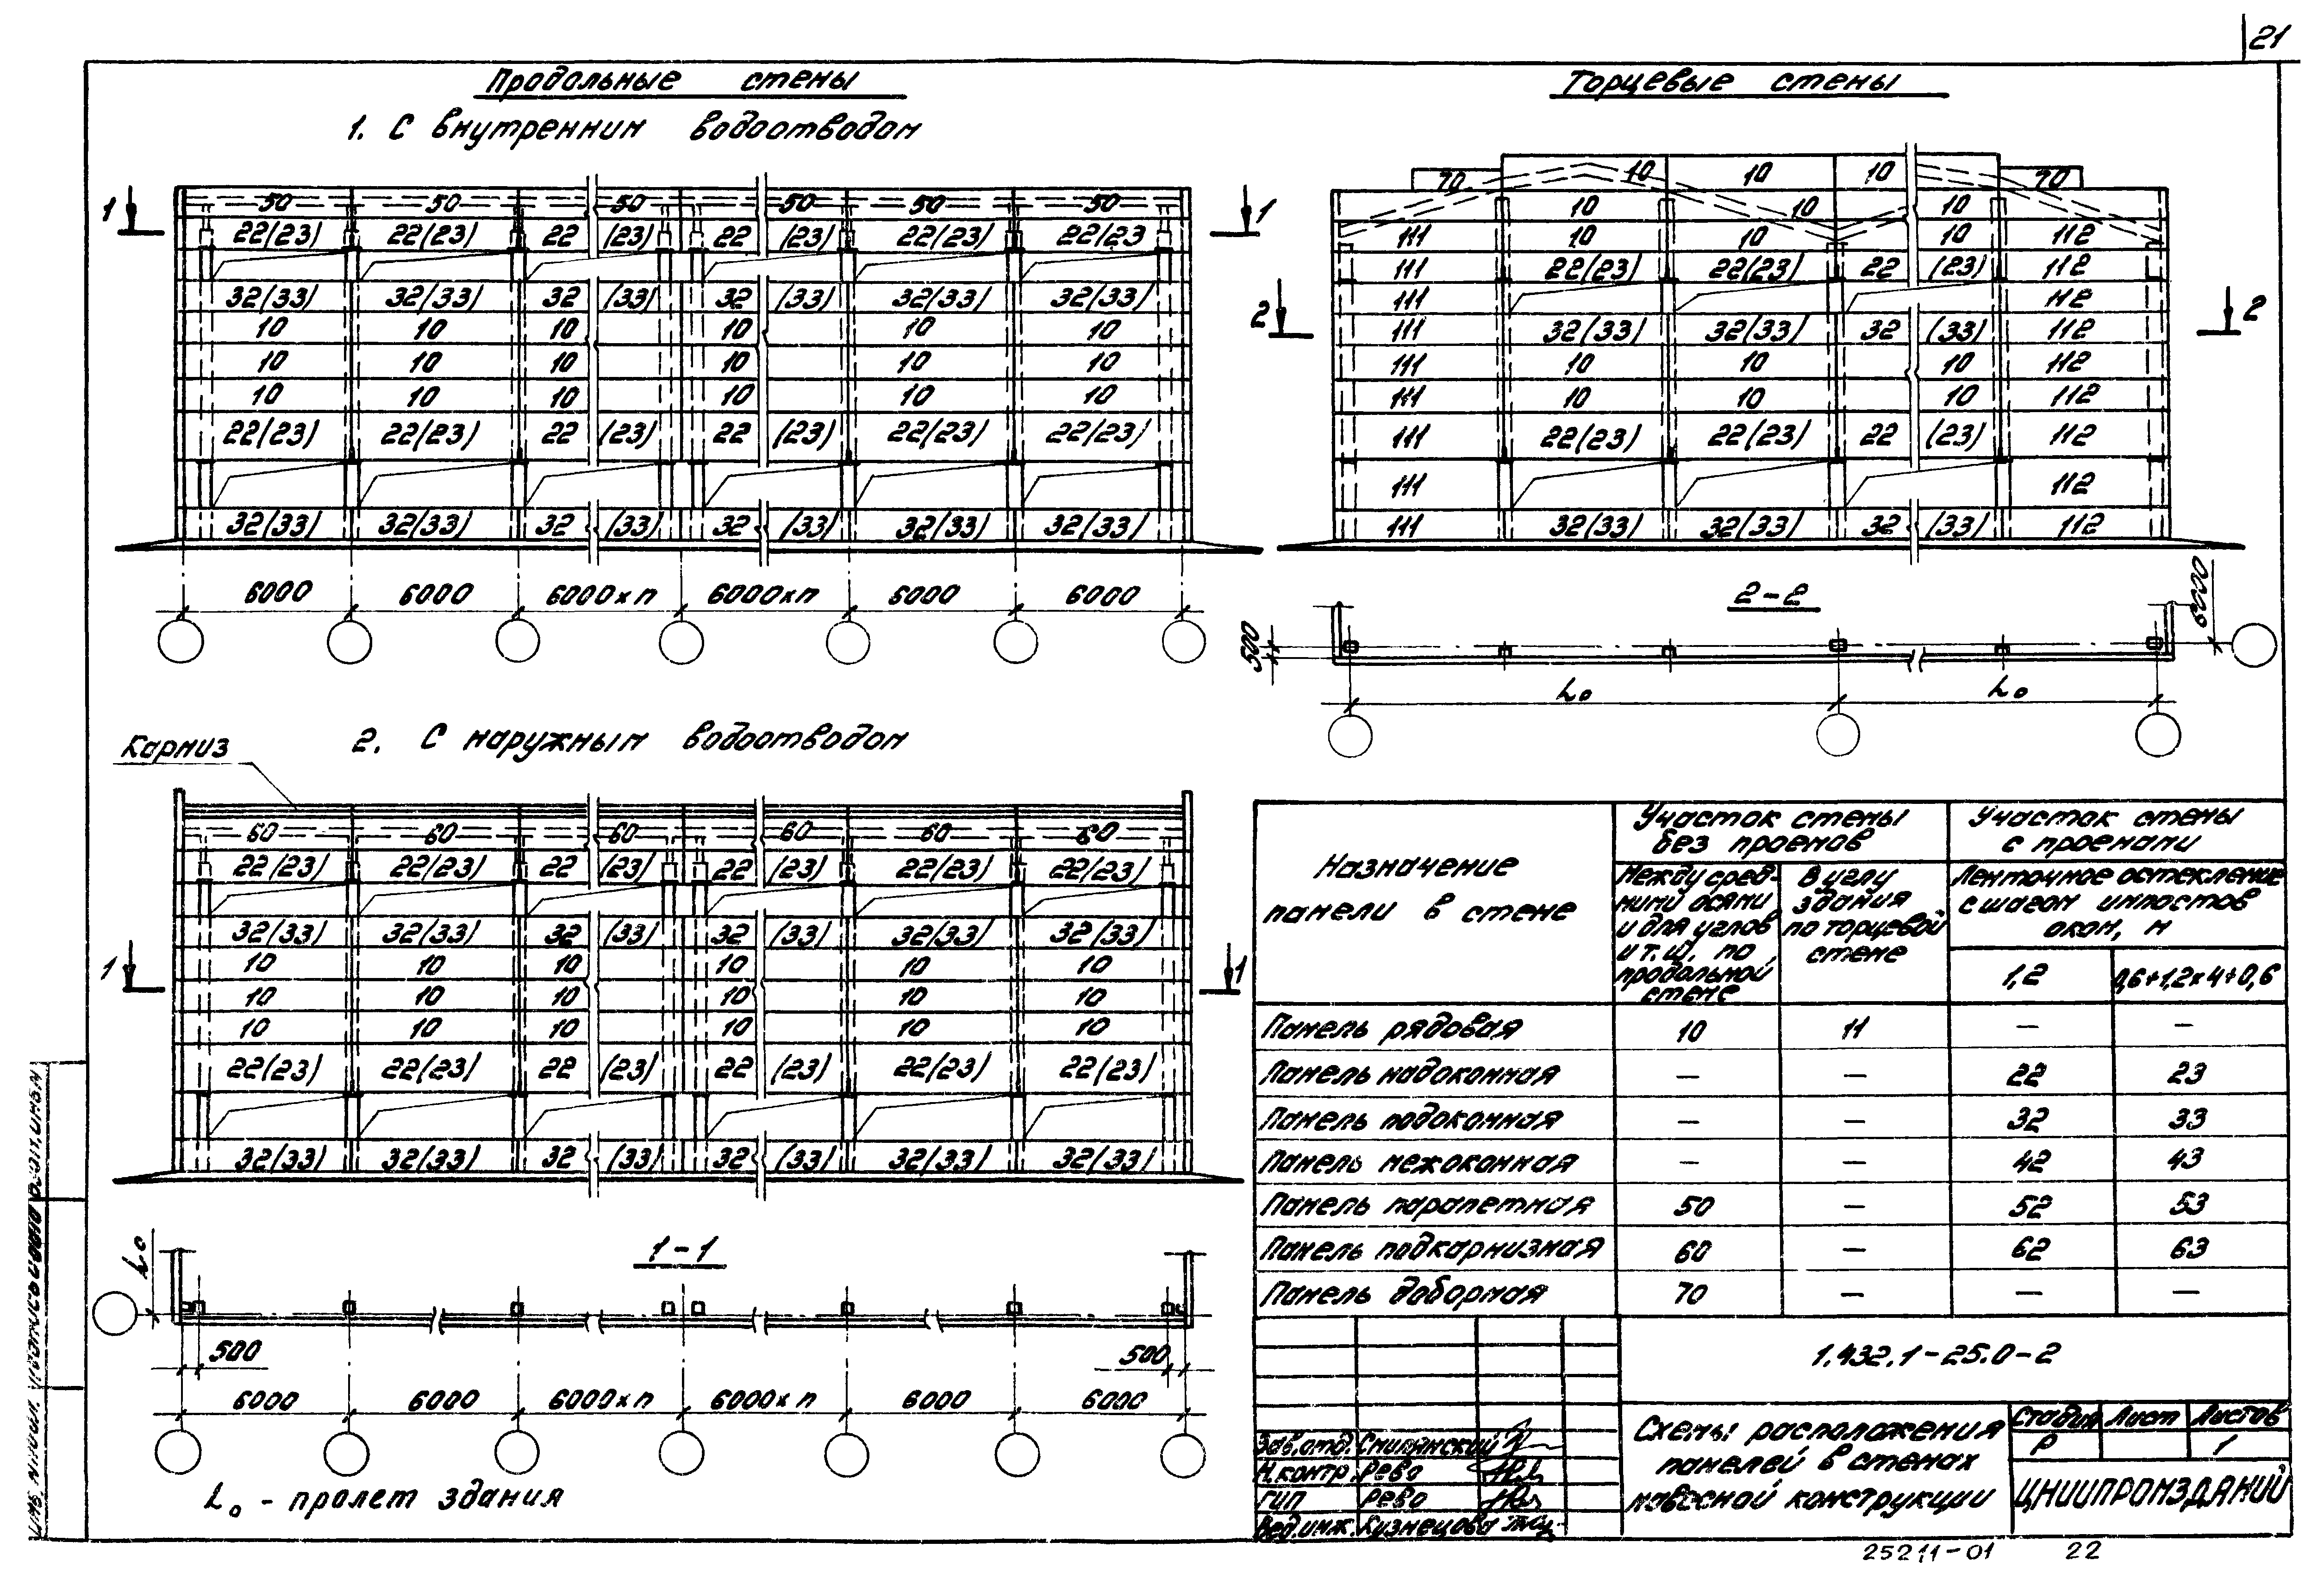 21
Продольные стены
1. С внутренним водоотводом
Торцевые стены
1 50 50 50 50 50 50 1
22(23) 22(23) 22 (23) 22 (23) 22(23) 22(23)
32(33) 32(33) 32 (33) 32 (33) 32(33) 32(33)
10 10 10 10 10 10
10 10 10 10 10 10
10 10 10 10 10 10
22(23) 22(23) 22 (23) 22 (23) 22(23) 22(23)
32(33) 32(33) 32 (33) 32 (33) 32(33) 32(33)
6000 6000 6000×п 6000×п 6000 6000
70 10 10 10 70
10 10 10
111 10 10 10 112
111 22(23) 22(23) 22 (23) 112
111 112
2 111 32(33) 32(33) 32 (33) 112 2
111 10 10 10 112
111 10 10 10 112
111 22(23) 22(23) 22 (23) 112
111 112
111 32(33) 32(33) 32 (33) 112
2-2
500 6000
L₀ L₀
2. С наружным водоотводом
Карниз
60 60 60 60 60 60
22(23) 22(23) 22 (23) 22 (23) 22(23) 22(23)
32(33) 32(33) 32 (33) 32 (33) 32(33) 32(33)
1 10 10 10 10 10 10 1
10 10 10 10 10 10
10 10 10 10 10 10
22(23) 22(23) 22 (23) 22 (23) 22(23) 22(23)
32(33) 32(33) 32 (33) 32 (33) 32(33) 32(33)
1-1
L₀
500 500
6000 6000 6000×п 6000×п 6000 6000
L₀ - пролет здания
Назначение
панели в стене
Участок стены
без проемов
Участок стены
с проемами
Между сред-
ними осями
и для углов
и т.ш. по
продольной
стене
В углу
здания
по торцевой
стене
Ленточное остекление
с шагом импостов
окон, м
1,2 0,6+1,2×4+0,6
Панель рядовая 10 11 — —
Панель надоконная — — 22 23
Панель подоконная — — 32 33
Панель межоконная — — 42 43
Панель парапетная 50 — 52 53
Панель подкарнизная 60 — 62 63
Панель доборная 70 — — —
1.432.1-25.0-2
Зав.отд. Смилянский
Н.контр. Рево
ГИП Рево
Вед.инж. Кузнецова
Схемы расположения
панелей в стенах
навесной конструкции
Стадия Лист Листов
Р 1
ЦНИИПРОМЗДАНИЙ
25211-01 22